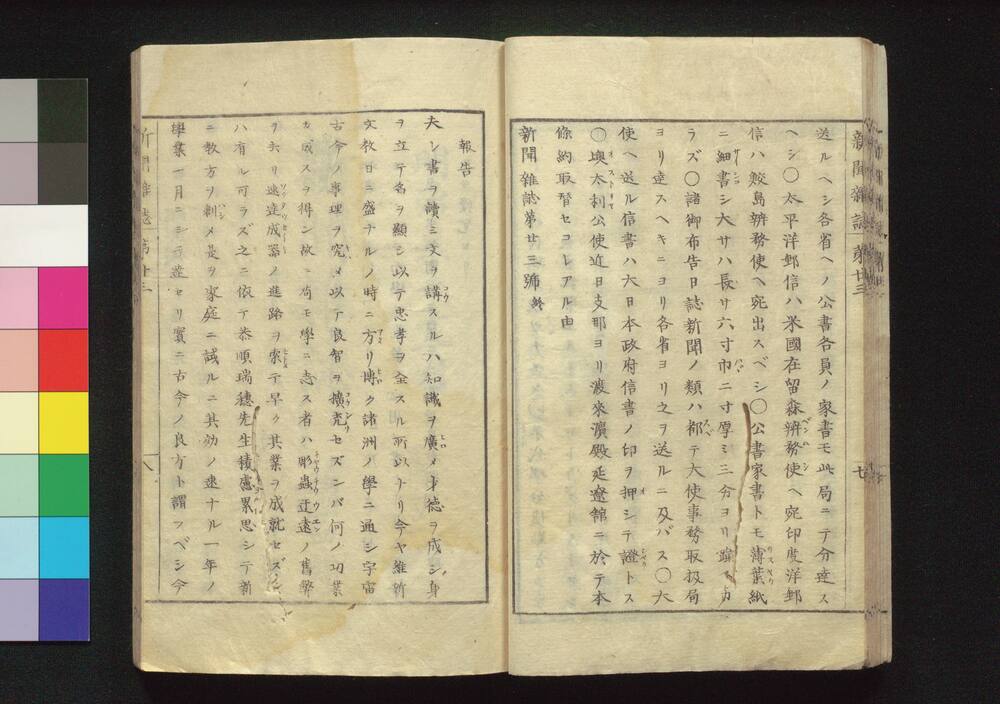 新聞雜誌 第廿三
七
送ルヘシ各省ヘノ公書各員ノ家書モ此局ニテ分達ス
ヘシ〇太平洋郵信ハ米國在留森辨務使ヘ宛印度洋郵
信ハ鮫島辨務使ヘ宛出スベシ〇公書家書トモ薄葉紙
ニ細書シ大サハ長サ六寸巾二寸厚ミ三分ヨリ踰ユ可カ
ラズ〇諸御布告日誌新聞ノ類ハ都テ大使事務取扱局
ヨリ達スヘキニヨリ各省ヨリ之ヲ送ルニ及バス〇大
使ヘ送ル信書ハ大日本政府信書ノ印ヲ押シテ證トス
〇墺太利公使近日支那ヨリ渡來濱殿延遼館ニ於テ本
條約取替セコレアル由
新聞雜誌第廿三號終
報告
夫レ書ヲ讀ミ文ヲ講スルハ知識ヲ廣メ才德ヲ成シ身
ヲ立テ名ヲ顯シ以テ忠孝ヲ全スル所以ナリ今ヤ維新
文教日ニ盛ナルノ時ニ方リ博ク諸洲ノ學ニ通シ宇宙
古今ノ事理ヲ究メ以テ良智ヲ擴充セズンバ何ノ功業
カ成スヲ得ン故ニ苟モ學ニ志ス者ハ彫蟲迂遠ノ舊弊
ヲ去リ速達成器ノ進路ヲ索テ早ク其業ヲ成就セズン
ハ有ル可ラズ之ニ依テ恭順瑞穗先生積慮累思シテ新
ニ教方ヲ剏メ是ヲ家庭ニ試ルニ其効ノ速ナル一年ノ
學業一月ニシテ盡セリ實ニ古今ノ良方ト謂フベシ今
新聞雜誌 第廿三
八